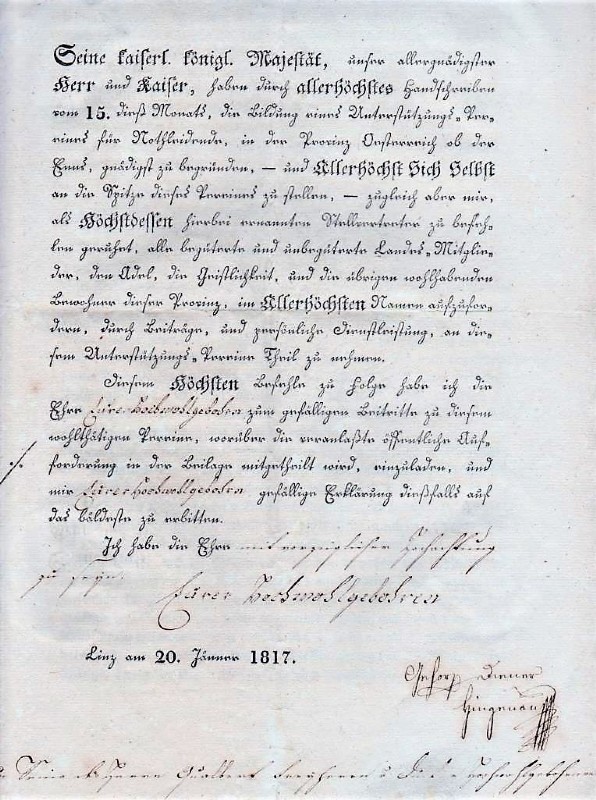 Seine kaiserl. königl. Majestät, unser allergnädigster
Herr und Kaiser, haben durch allerhöchstes Handschreiben
vom 15. dieß Monats, die Bildung eines Unterstützungs-Ver-
eines für Nothleidende, in der Provinz Oesterreich ob der
Enns, gnädigst zu begründen, — und Allerhöchst Sich Selbst
an die Spitze dieses Vereines zu stellen, — zugleich aber mir,
als Höchstdessen hierbei ernannten Stellvertreter zu befeh-
len geruhet, alle begüterte und unbegüterte Landes-Mitglie-
der, den Adel, die Geistlichkeit, und die übrigen wohlhabenden
Bewohner dieser Provinz, im Allerhöchsten Namen aufzufor-
dern, durch Beiträge, und persönliche Dienstleistung, an die-
sem Unterstützungs-Vereine Theil zu nehmen.
Diesem Höchsten Befehle zu Folge habe ich die
Ehre Eurer Hochwohlgebohren zum gefälligen Beitritte zu diesem
wohlthätigen Vereine, worüber die veranlaßte öffentliche Auf-
forderung in der Beilage mitgetheilt wird, einzuladen, und
mir Eurer Hochwohlgebohren gefällige Erklärung dießfalls auf
das bäldeste zu erbitten.
Ich habe die Ehre mit vorzüglicher Hochachtung
zu seyn
Eurer Hochwohlgebohren
Linz am 20. Jänner 1817.
Gehors Diener
Hingenau
Herrn Freyherrn Hochwohlgebohren